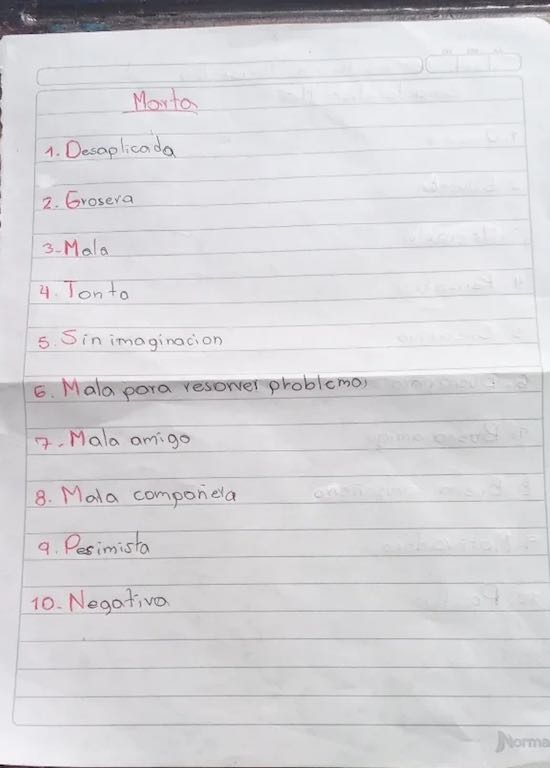 Marta
1. Desaplicada
2. Grosera
3- Mala
4. Tonta
5. Sin imaginacion
6. Mala para resolver problemas
7- Mala amiga
8. Mala compañera
9. Pesimista
10- Negativa
Norma